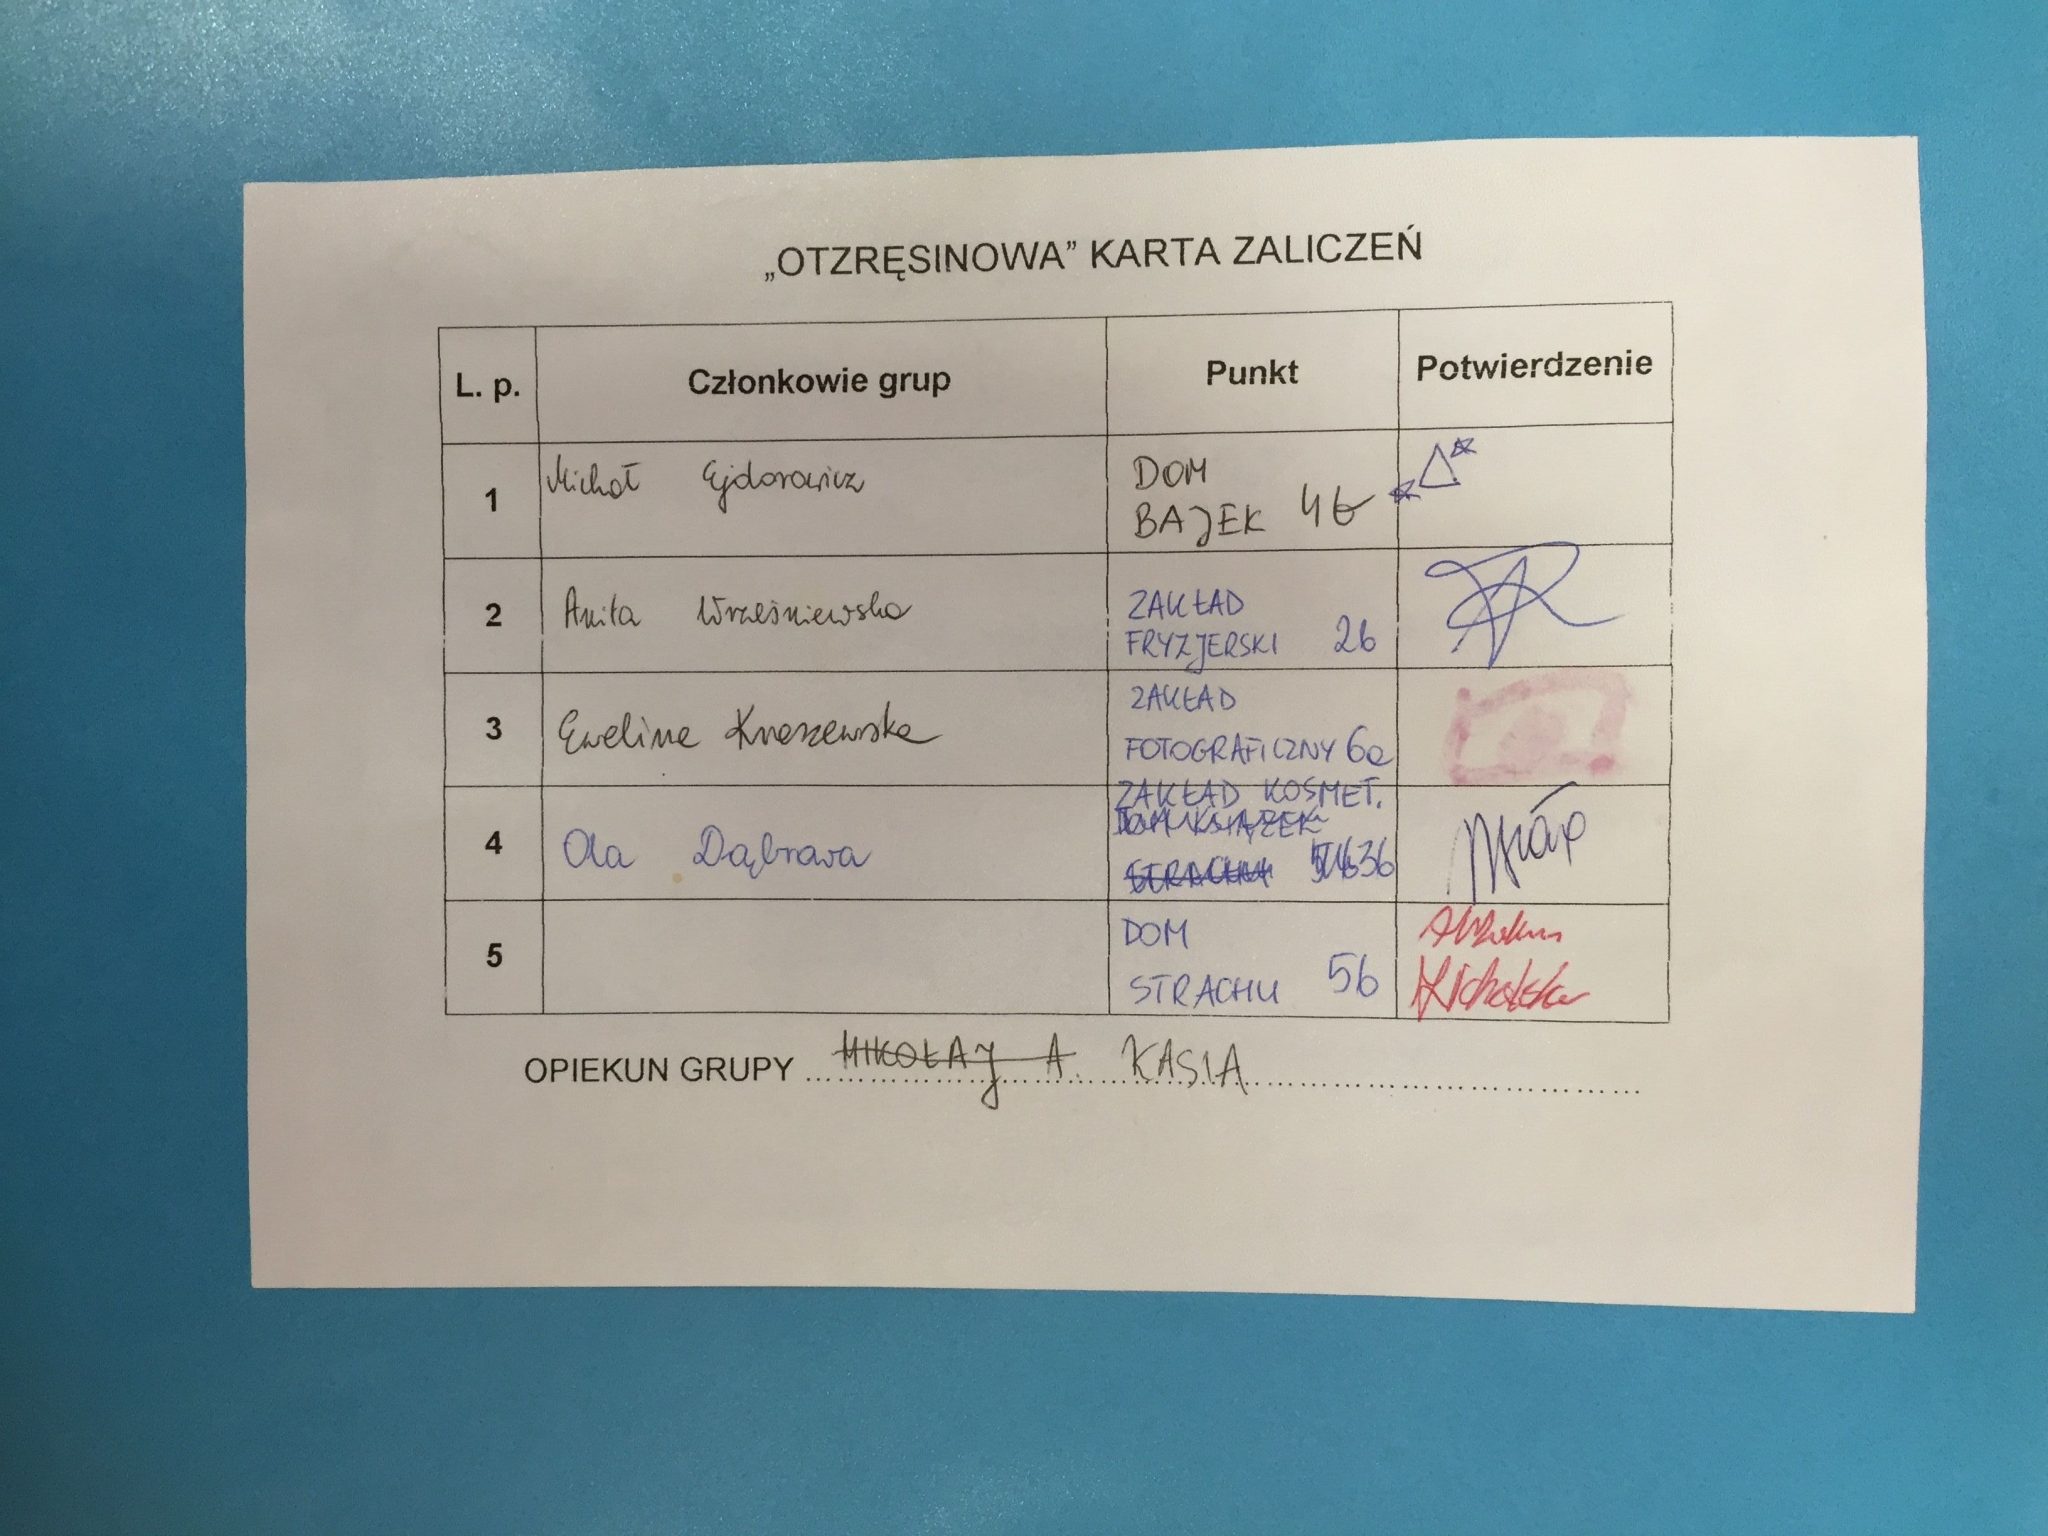 „OTZRĘSINOWA” KARTA ZALICZEŃ
L. p. Członkowie grup Punkt Potwierdzenie
1 Michał Ejdorowicz DOM
BAJEK 4b
2 Anita Wrześniewska ZAKŁAD
FRYZJERSKI 26
3 Ewelina Kraszewska ZAKŁAD
FOTOGRAFICZNY 6a
ZAKŁAD KOSMET.
DOM KSIĄŻEK
4 Ola Dąbrowa STRACHU 36
5 DOM
STRACHU 56
OPIEKUN GRUPY MIKOŁAJ A. KASIA